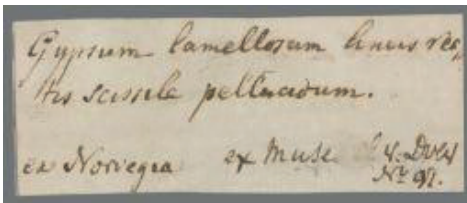 Gypsum lamellosum lineis rec„
tis scissile pellucidum.
ex Norvegia ex Muse
No 97.